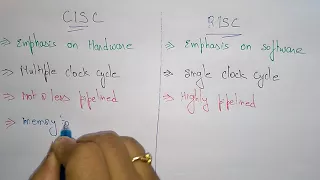 CISC
RISC
⇒ Emphasis on Hardware
⇒ Emphasis on software
⇒ Multiple clock cycle
⇒ Single clock cycle
⇒ Not & less pipelined
⇒ Highly pipelined
⇒ memory